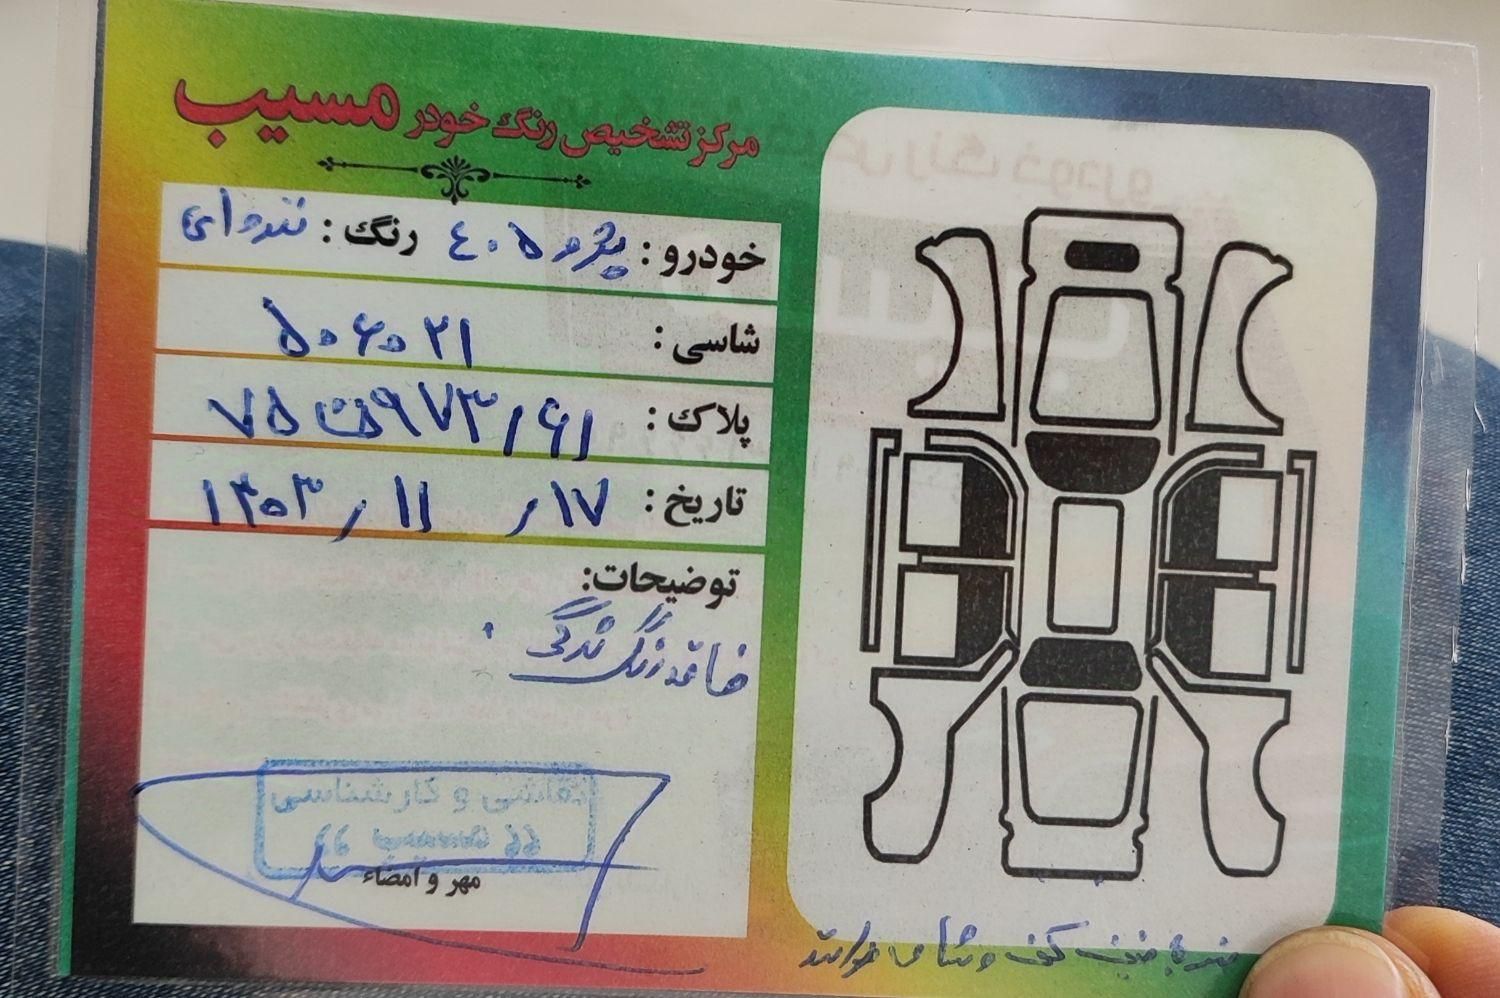 مرکز تشخیص رنگ خودر مسیب
خودرو: پژو ۴۰۵ رنگ: نقره‌ای
شاسی: ۵۰۶۰۲۱
پلاک: ۷۵ ق ۹۷۳ / ۶۱
تاریخ: ۱۷ / ۱۱ / ۱۴۰۳
توضیحات:
فاقد رنگ شدگی.
نقاشی و کارشناسی
مسیب
مهر و امضاء
کف و شاسی